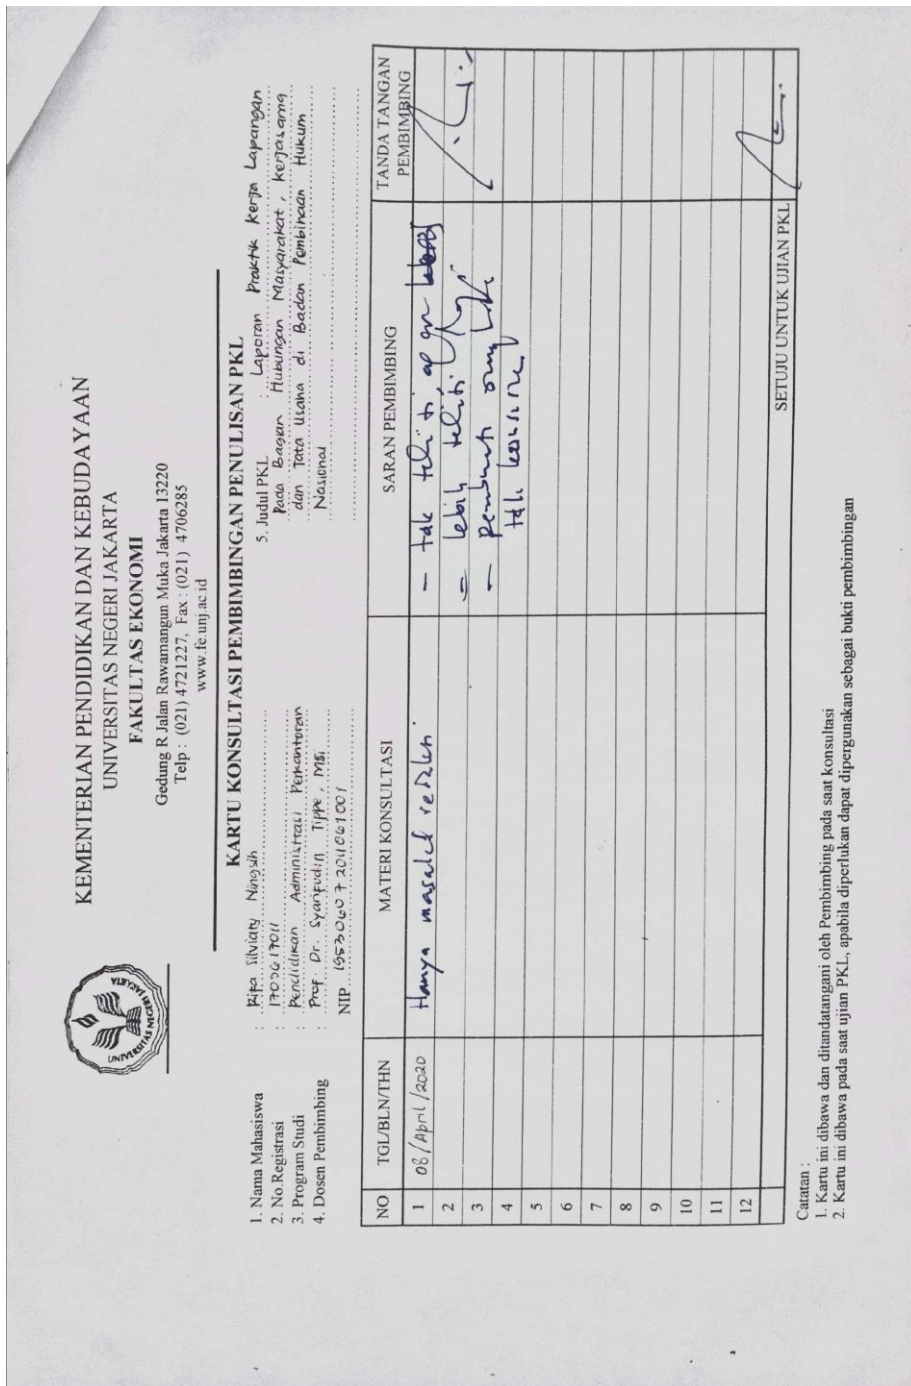 KEMENTERIAN PENDIDIKAN DAN KEBUDAYAAN
UNIVERSITAS NEGERI JAKARTA
FAKULTAS EKONOMI
Gedung R Jalan Rawamangun Muka Jakarta 13220
Telp : (021) 4721227, Fax : (021) 4706285
www.fe.unj.ac.id
UNIVERSITAS NEGERI JAKARTA
KARTU KONSULTASI PEMBIMBINGAN PENULISAN PKL
1. Nama Mahasiswa : Rifa Silviaty Ningsih
2. No.Registrasi
3. Program Studi : Pendidikan Administrasi Perkantoran
4. Dosen Pembimbing : Prof. Dr. Syarifudin Tippe, MSi
NIP. 195306072011061001
5. Judul PKL : Laporan Praktik Kerja Lapangan
Pada Bagian Hubungan Masyarakat, Kerjasama
dan Tata Usaha di Badan Pembinaan Hukum
Nasional
NO TGL/BLN/THN MATERI KONSULTASI SARAN PEMBIMBING TANDA TANGAN PEMBIMBING
1 08/April/2020 Hanya masalah - tak teliti,
2 - lebih teliti
3 -
4
5
6
7
8
9
10
11
12
SETUJU UNTUK UJIAN PKL
Catatan :
1. Kartu ini dibawa dan ditandatangani oleh Pembimbing pada saat konsultasi
2. Kartu ini dibawa pada saat ujian PKL, apabila diperlukan dapat dipergunakan sebagai bukti pembimbingan